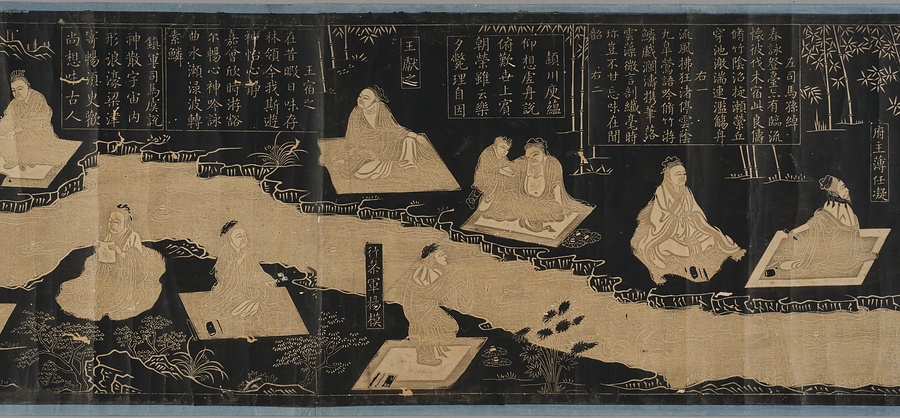 府主簿任凝
左司馬孫綽
春詠登臺亦有臨流
懷彼伐木宿此良儔
修竹陰沼旋瀨縈丘
穿池激湍連濫觴舟
右一
流風拂枉渚停雲蔭
九皋鶯語吟修竹游
鱗戲瀾濤攜筆落
雲藻微言剖纖毫時
珍豈不甘忘味在聞
韶 右二
潁川庾蘊
仰想虛舟說
俯歎世上賓
朝榮雖云樂
夕斃理自因
王獻之
行參軍楊模
王宿之
在昔暇日味存
林嶺今我斯遊
神怡心靜
嘉會欣時游豁
尒暢心神吟詠
曲水瀨淥波轉
素鱗
鎮軍司馬虞說
神散宇宙內
形浪濠梁津
寄暢須臾歡
尚想味古人